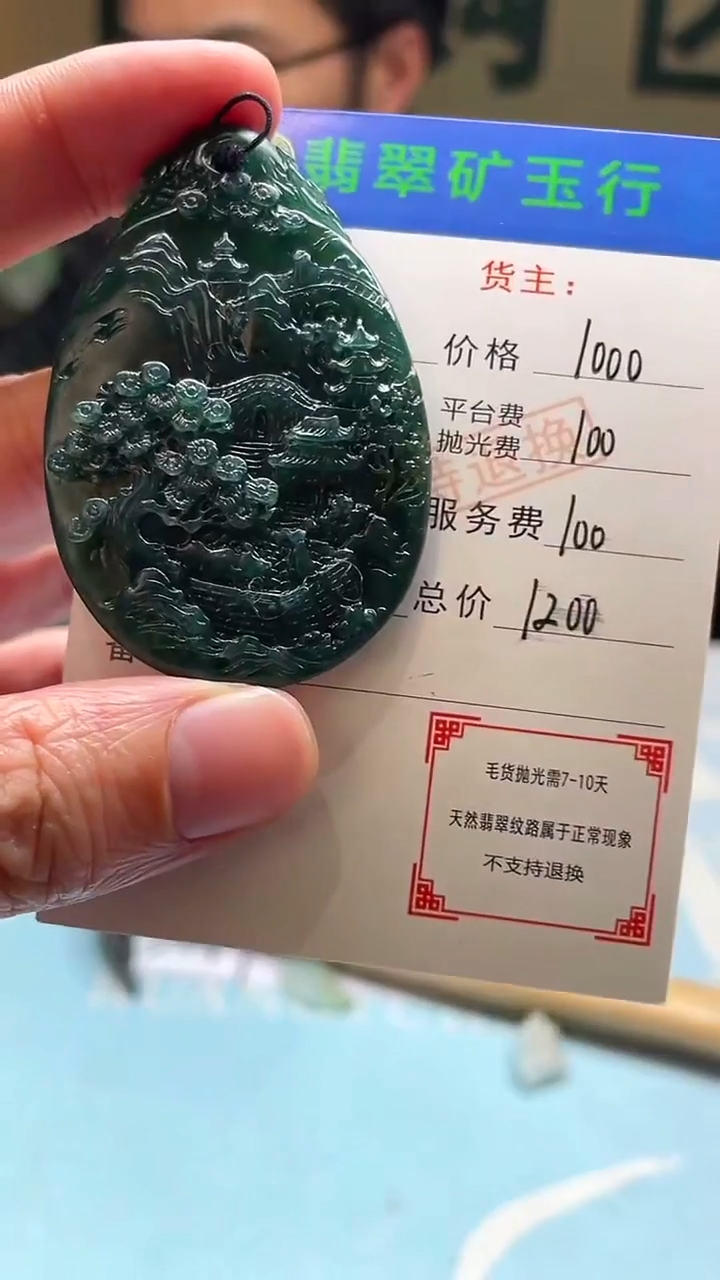 翡翠矿玉行
货主：
价格 1000
平台费
抛光费 100
持退换
服务费 100
总价 1200
毛货抛光需7-10天
天然翡翠纹路属于正常现象
不支持退换